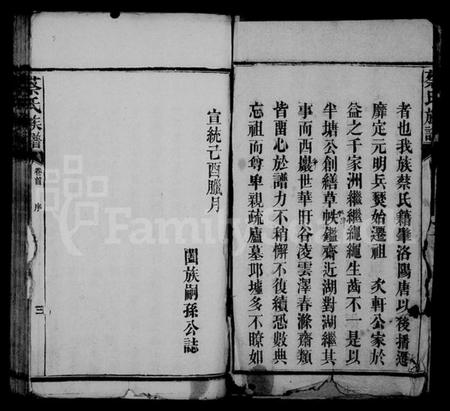 蔡氏族譜
者也我族蔡氏籍肇洛陽唐以後播遷
靡定元明兵燹始遷祖 次軒公家於
益之千家洲繼繼繩繩生齒不一是以
半塘公創繕草帙鑑齋近湖對湖繼其
事而西巖世華肝谷凌雲澤春滌齋類
皆菌心於譜力不稍懈不復續恐數典
忘祖而尊卑親疏廬墓邱墟多不瞭如
宣統己酉臘月
闔族嗣孫公誌
蔡氏族譜
卷首 序
三
Family